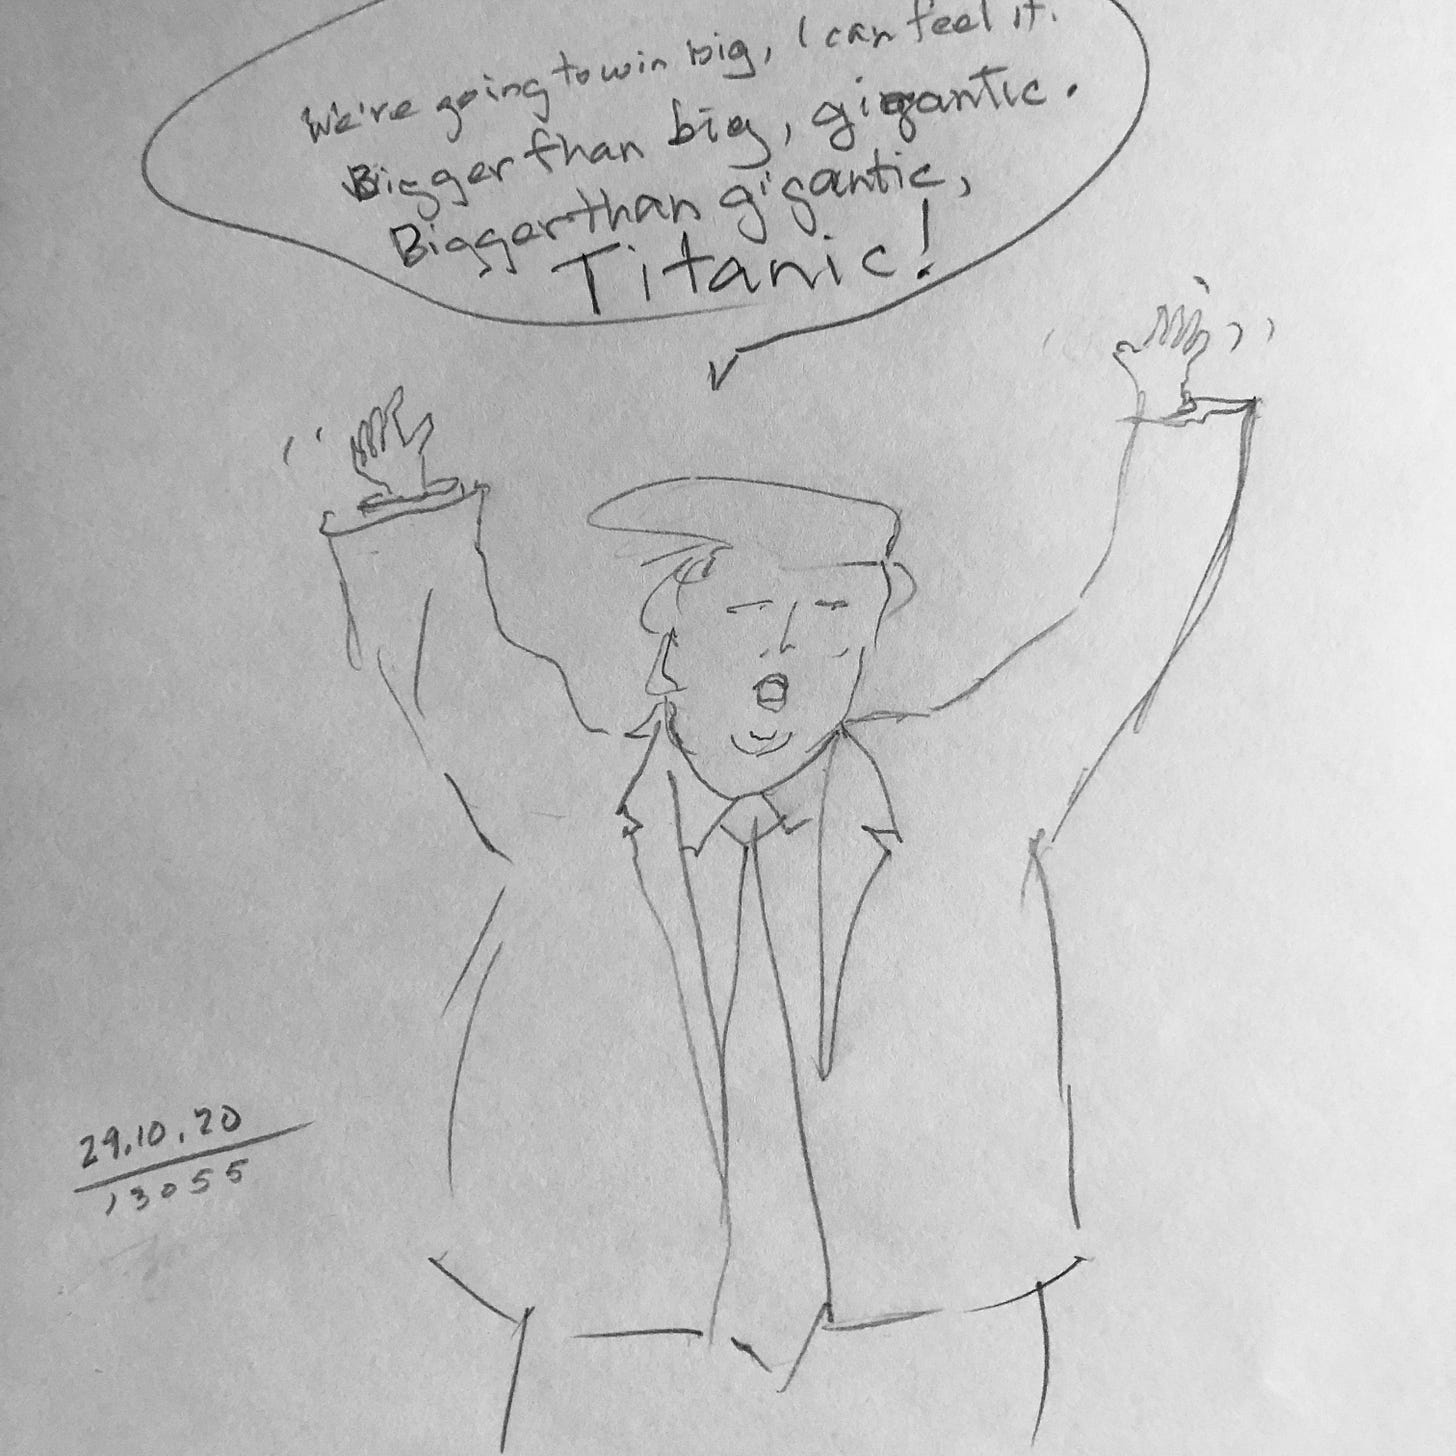 We're going to win big, I can feel it.
Bigger than big, gigantic.
Bigger than gigantic,
Titanic!
29.10.20
13055